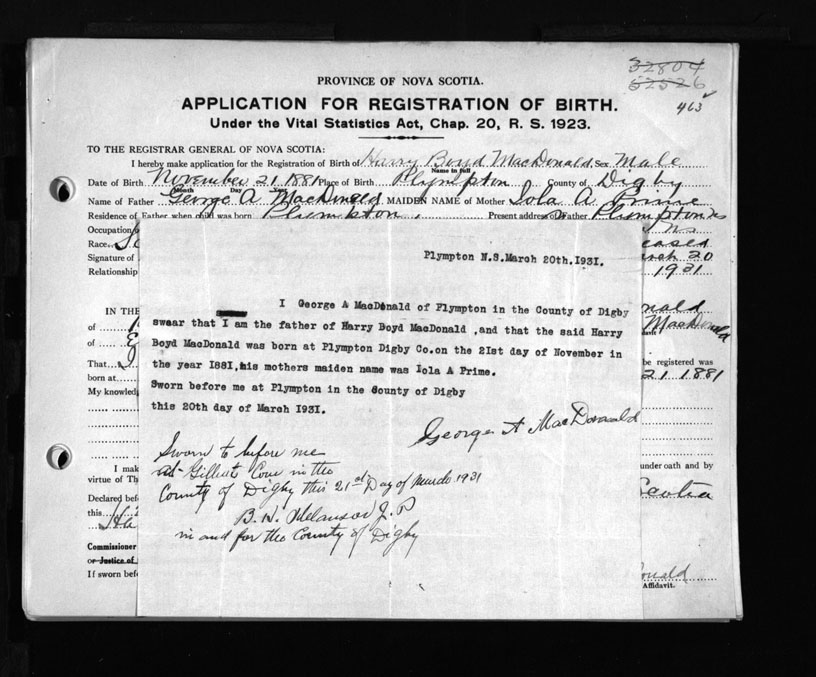 32804
52526
463
PROVINCE OF NOVA SCOTIA.
APPLICATION FOR REGISTRATION OF BIRTH.
Under the Vital Statistics Act, Chap. 20, R. S. 1923.
TO THE REGISTRAR GENERAL OF NOVA SCOTIA:
I hereby make application for the Registration of Birth of Harry Boyd MacDonald Sex Male
Name in full
Date of Birth November 21 1881 Place of Birth Plympton County of Digby
Month Day Year
Name of Father George A MacDonald MAIDEN NAME of Mother Iola A Prime
Residence of Father when child was born Plympton. Present address of Father Plympton NS
Occupation
Race
Signature of March 20
Relationship 1931
Plympton N.S.March 20th.1931.
I George A MacDonald of Plympton in the County of Digby
swear that I am the father of Harry Boyd MacDonald ,and that the said Harry
Boyd MacDonald was born at Plympton Digby Co.on the 21st day of November in
the year 1881,his mothers maiden name was Iola A Prime.
Sworn before me at Plympton in the County of Digby
this 20th day of March 1931.
George A MacDonald
Sworn to before me
at Gilberts Cove in the
County of Digby this 21st Day of March 1931
B. H. Melanson J. P
in and for the County of Digby
IN THE
of MacDonald
of
That I be registered was
born at 21 1881
My knowledge
I make under oath and by
virtue of Scotia
Declared before
this
Commissioner
or Justice of
If sworn before Affidavit.